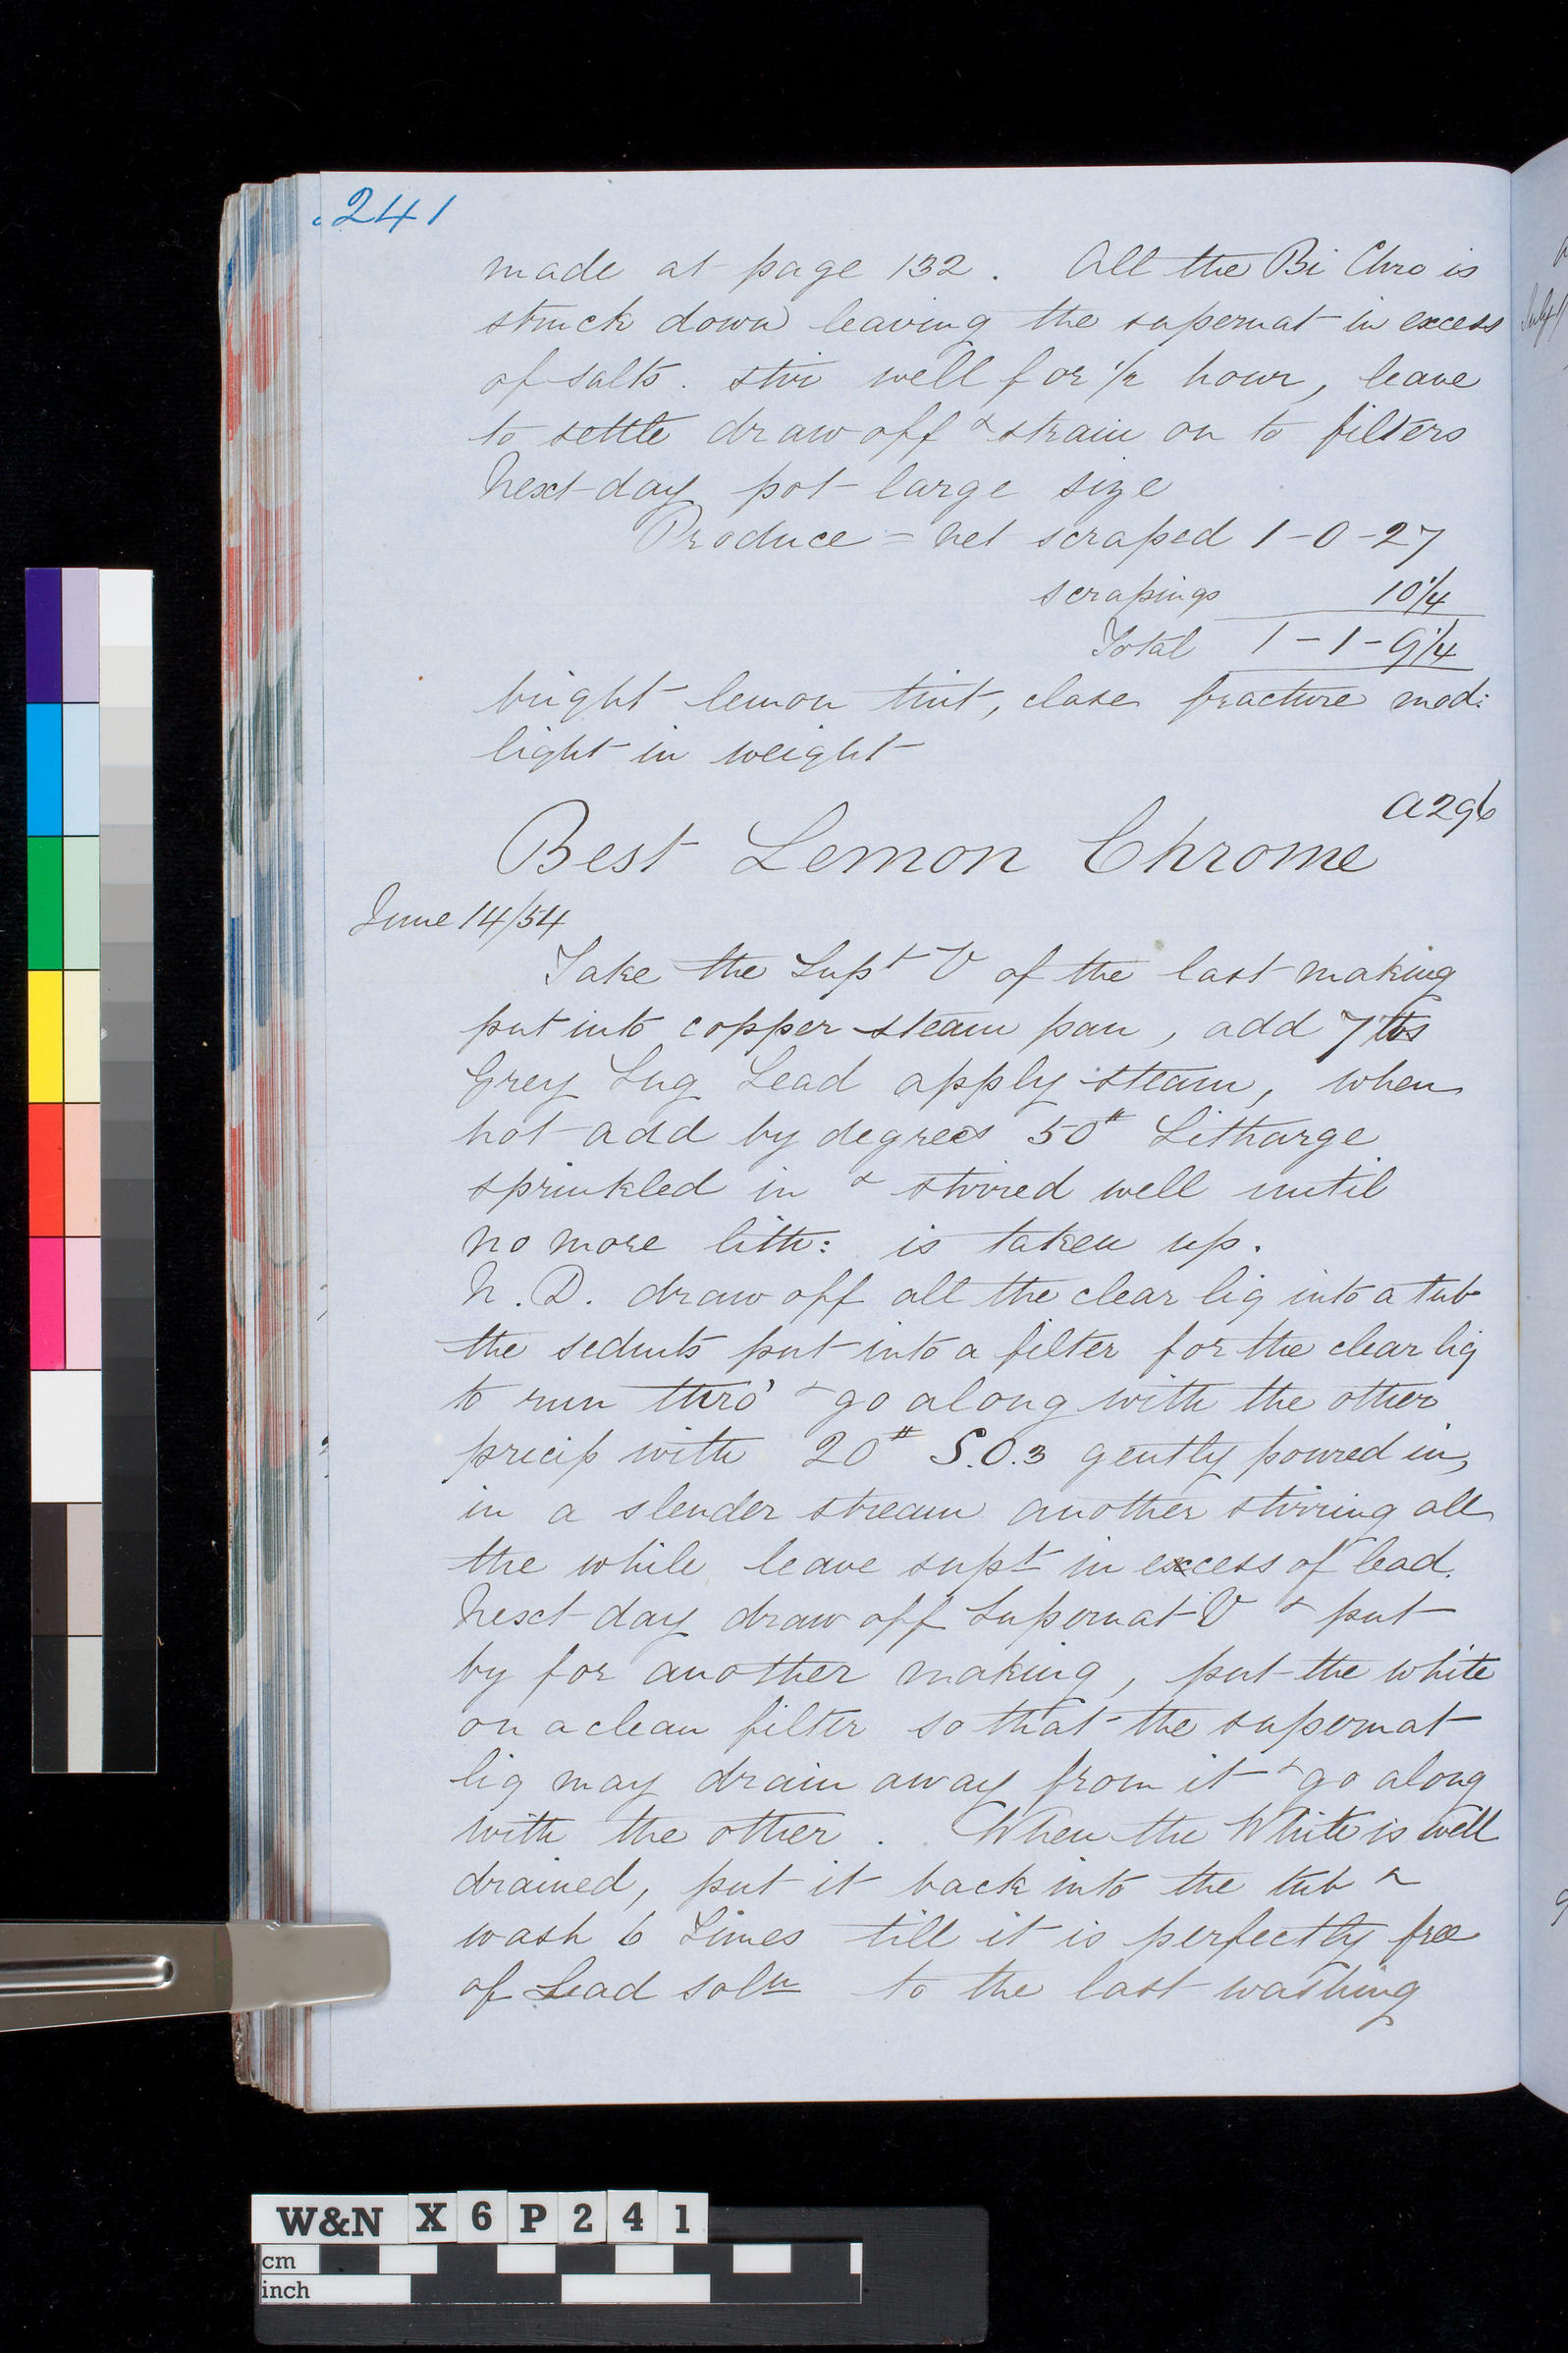 241
made at page 132. All the Bi Chro is
struck down leaving the supernat in excess
of salts. stir well for 1/2 hour, leave
to settle draw off & strain on to filters
Next day pot large size
Produce = net scraped 1-0-27
scrapings 10 1/4
Total 1-1-9 1/4
bright lemon tint, close fracture mod:
light in weight
A296
Best Lemon Chrome
June 14/54
Take the Supt V of the last making
put into copper steam pan, add 7 lbs
Grey Sug Lead apply steam, when
hot add by degrees 50# Litharge
sprinkled in & stirred well until
no more lith: is taken up.
N.D. draw off all the clear liq into a tub
the sedmts put into a filter for the clear liq
to run thro' & go along with the other
precip with 20# S.O.3 gently poured in,
in a slender stream another stirring all
the while leave supt in excess of lead.
Next day draw off Supernat V & put
by for another making, put the white
on a clean filter so that the supernat
liq may drain away from it & go along
with the other. When the White is well
drained, put it back into the tub &
wash 6 times till it is perfectly free
of Lead soln to the last washing
July
W&N X6P241
cm
inch